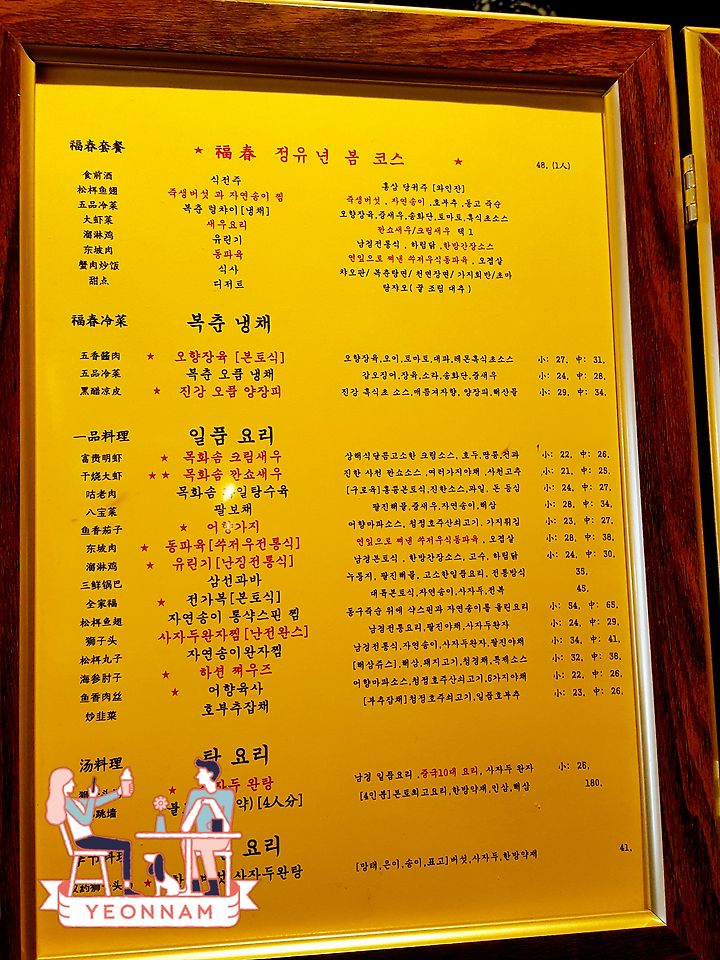 福春套餐 ★ 福春 정유년 봄 코스 ★ 48. (1人)
食前酒 식전주 홍삼 당귀주 [와인잔]
松栮鱼翅 죽생버섯 과 자연송이 찜 죽생버섯, 자연송이, 호부추, 동고 죽순
五品冷菜 복춘 렁챠이[냉채] 오향장육,중새우,송화단,토마토,흑식초소스
大虾菜 새우요리 깐쇼새우/크림새우 택 1
溜淋鸡 유린기 남경전통식, 하림닭, 한방간장소스
东坡肉 동파육 연잎으로 쪄낸 쑤저우식동파육, 오겹살
蟹肉炒饭 식사 챠오판/ 복춘탕면/ 천면장면/ 가지회반/초마
甜点 디저트 탕쟈오( 꿀 조림 대추 )
福春冷菜 복춘 냉채
五香酱肉 ★ 오향장육 [본토식] 오향장육,오이,토마토,대파,레몬흑식초소스 小: 27. 中: 31.
五品冷菜 복춘 오품 냉채 갑오징어,장육,소라,송화단,중새우 小: 24. 中: 28.
黑醋凉皮 ★ 진강 오품 양장피 진강 흑식초 소스,매콤겨자향, 양장피,해산물 小: 29. 中: 34.
一品料理 일품 요리
富贵明虾 ★ 목화솜 크림새우 상해식달콤고소한 크림소스, 호두,땅콩,견과 小: 22. 中: 26.
干烧大虾 ★★ 목화솜 깐쇼새우 진한 사천 깐쇼소스, 여러가지야채, 사천고추 小: 21. 中: 25.
咕老肉 목화솜 과일탕수육 [구로육]홍콩본토식,진한소스,과일, 돈 등심 小: 24. 中: 27.
八宝菜 팔보채 팔진해물,중새우,자연송이,해삼 小: 28. 中: 34.
鱼香茄子 ★ 어향가지 어향마파소스, 청정호주산쇠고기, 가지튀김 小: 23. 中: 27.
东坡肉 ★ 동파육[쑤저우전통식] 연잎으로 쪄낸 쑤저우식동파육, 오겹살 小: 28. 中: 38.
溜淋鸡 ★ 유린기[난징전통식] 남경본토식, 한방간장소스, 고수, 하림닭 小: 24. 中: 30.
三鲜锅巴 삼선과바 누룽지, 팔진해물, 고소한일품요리, 전통방식 35.
全家福 ★ 전가복[본토식] 대륙본토식,자연송이,사자두,전복 45.
松栮鱼翅 자연송이 통샥스핀 찜 동구죽순 위에 샥스핀과 자연송이를 올린요리 小: 54. 中: 65.
狮子头 사자두완자찜[난전완스] 남경전통요리,팔진야채,사자두완자 小: 24. 中: 29.
松栮丸子 자연송이완자찜 남경전통식,자연송이,사자두완자,팔진야채 小: 34. 中: 41.
海参肘子 ★ 하선 쪄우즈 [해삼쥬스],해삼,돼지고기,청경채,특제소스 小: 32. 中: 38.
鱼香肉丝 ★ 어향육사 어향마파소스,청정호주산쇠고기,6가지야채 小: 22. 中: 26.
炒韭菜 호부추잡채 [부추잡채]청정호주쇠고기,일품호부추 小: 23. 中: 26.
汤料理 탕 요리
★ 자두 완탕 남경 일품요리, 중국10대 요리, 사자두 완자 小: 26.
跳墙 약) [4人分] [4인분]본토최고요리,한방약재,인삼,해삼 180.
요리
头 ★ 버섯 사자두완탕 [망태,은이,송이,표고]버섯,사자두,한방약재 41.
YEONNAM